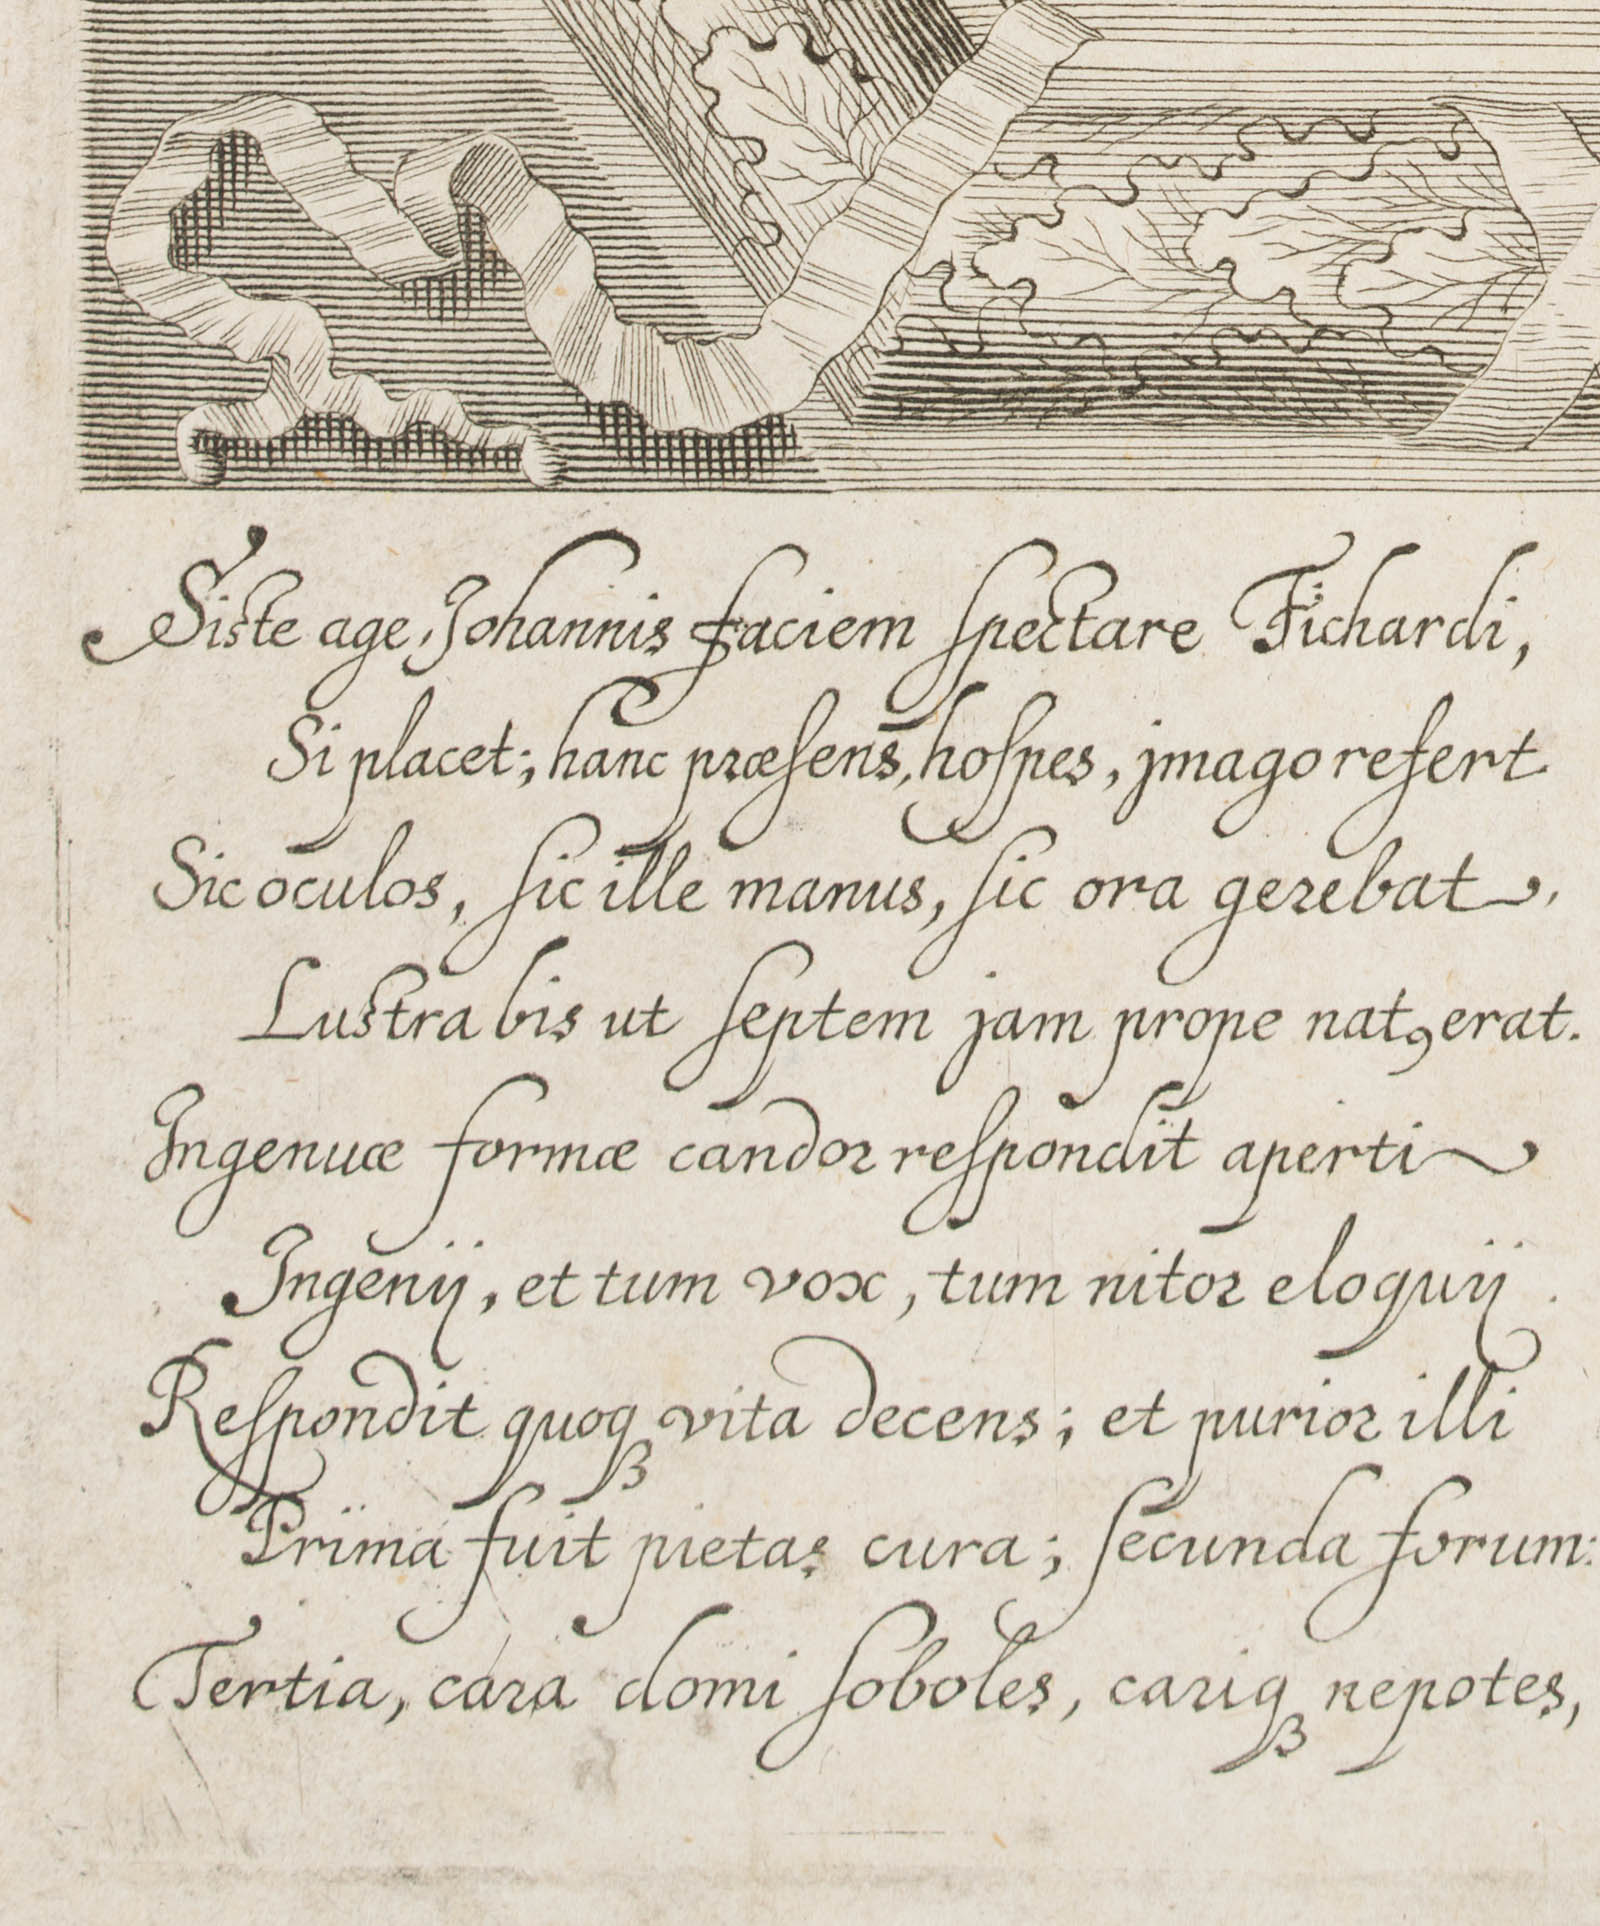 Siste age, Johannis faciem ſpectare Fichardi,
Si placet; hanc præſens, hoſpes, jmago refert.
Sic oculos, ſic ille manus, ſic ora gerebat,
Lustra bis ut ſeptem jam prope natꝰ erat.
Ingenuæ formæ candor reſpondit aperti
Ingenij, et tum vox, tum nitor eloquij.
Reſpondit quoqꝫ vita decens; et purior illi
Prima fuit pietas cura; ſecunda forum:
Tertia, cara domi ſoboles, cariqꝫ nepotes,